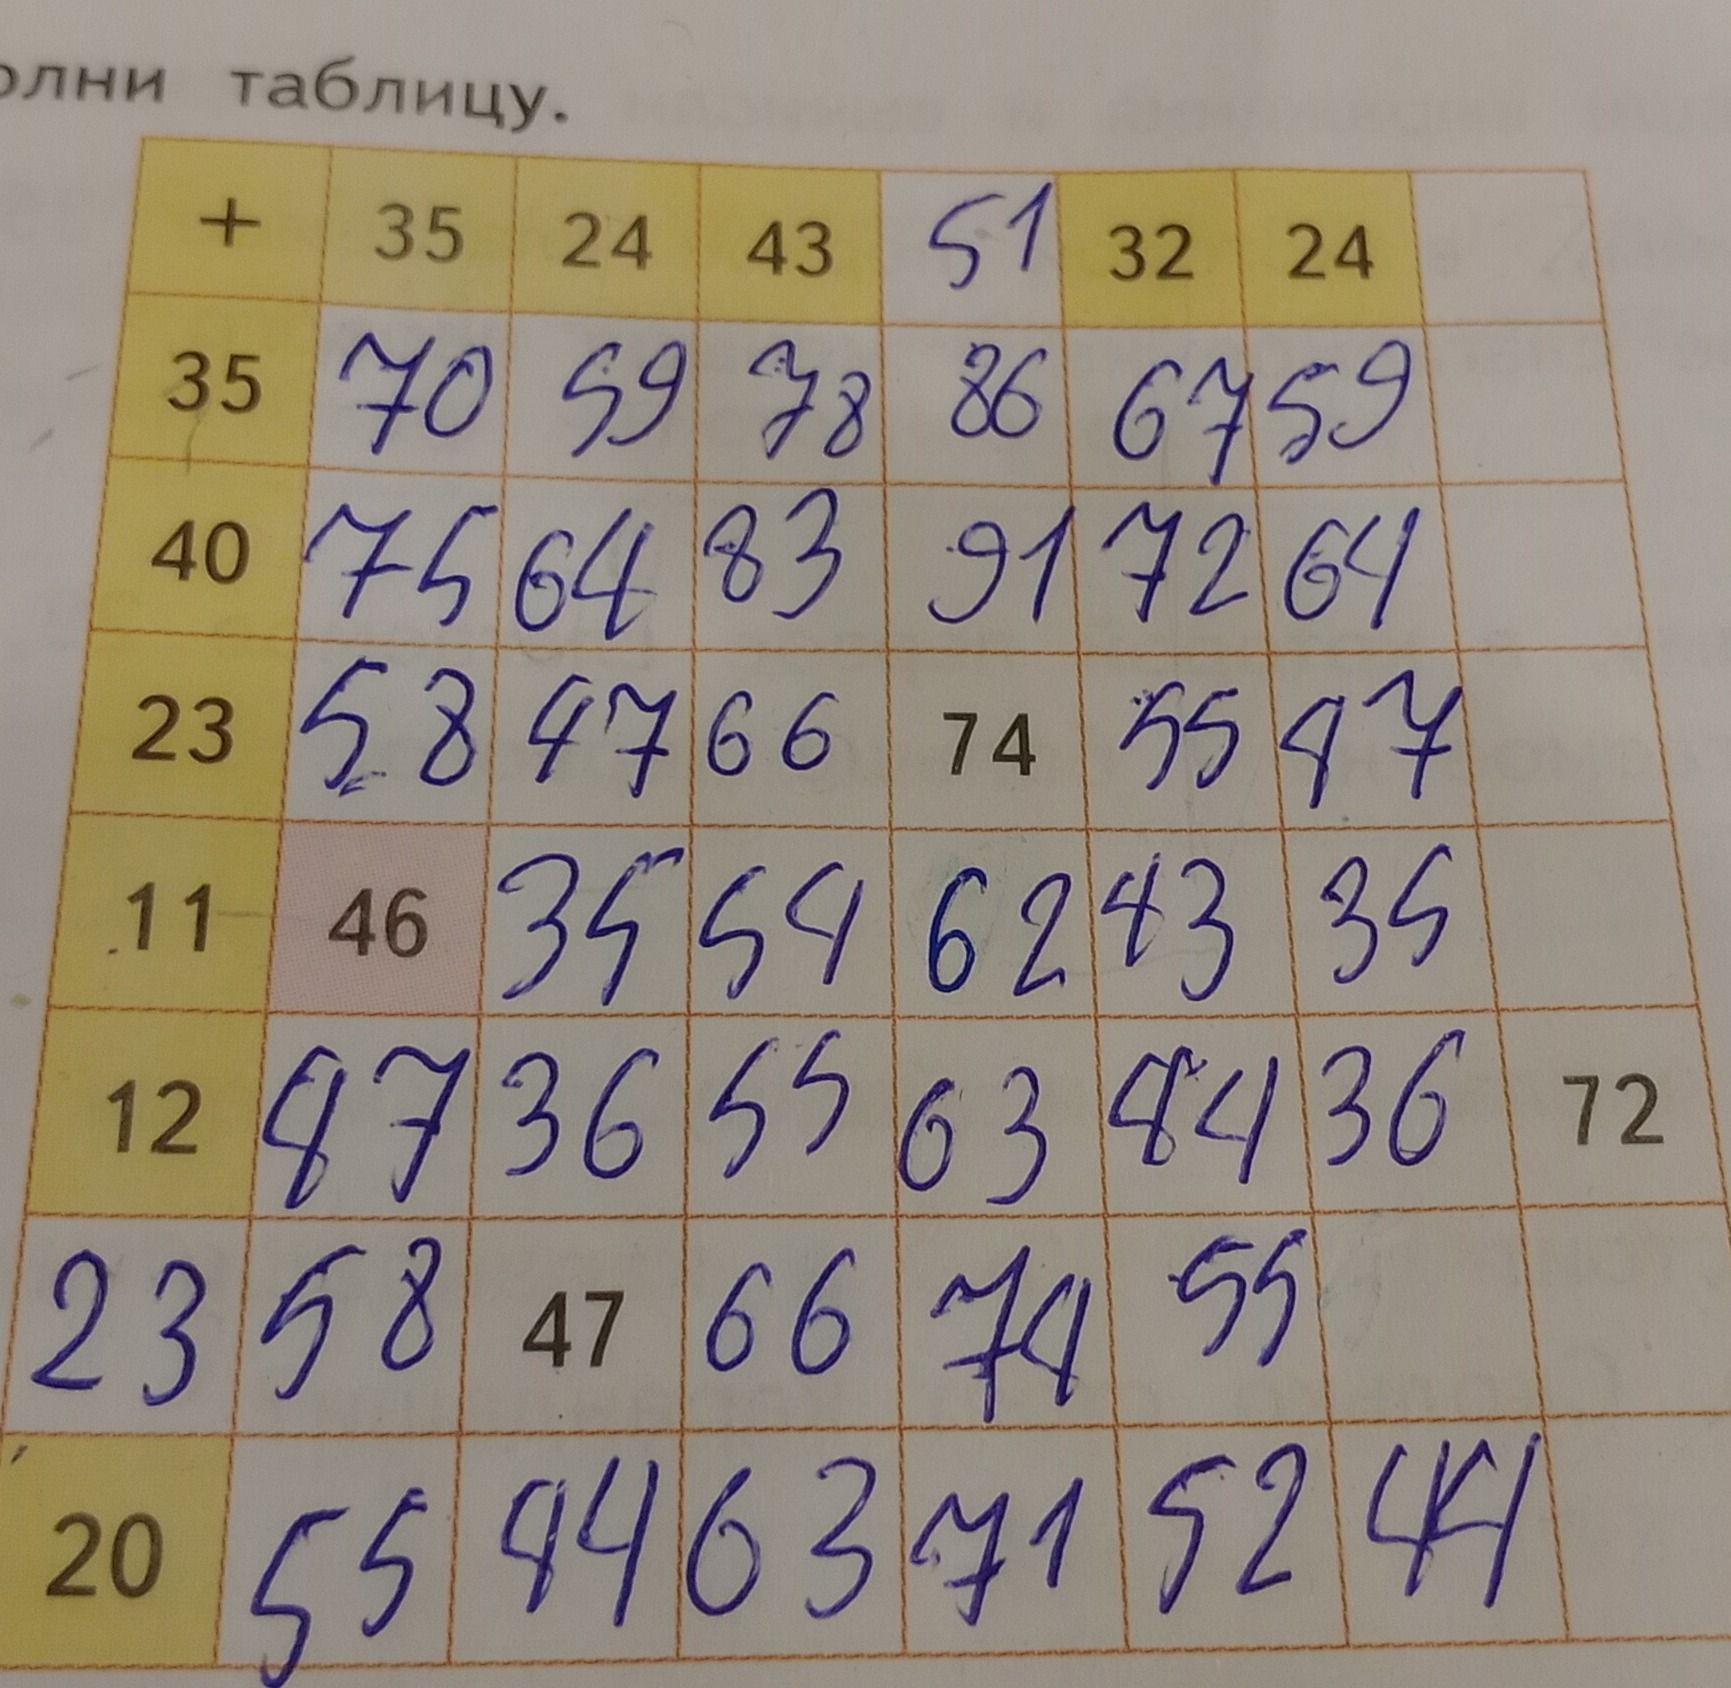 олни таблицу.
+ 35 24 43 51 32 24
35 70 59 78 86 67 59
40 75 64 83 91 72 64
23 58 47 66 74 55 47
11 46 35 54 62 43 35
12 47 36 55 63 44 36 72
23 58 47 66 74 55
20 55 44 63 71 52 44